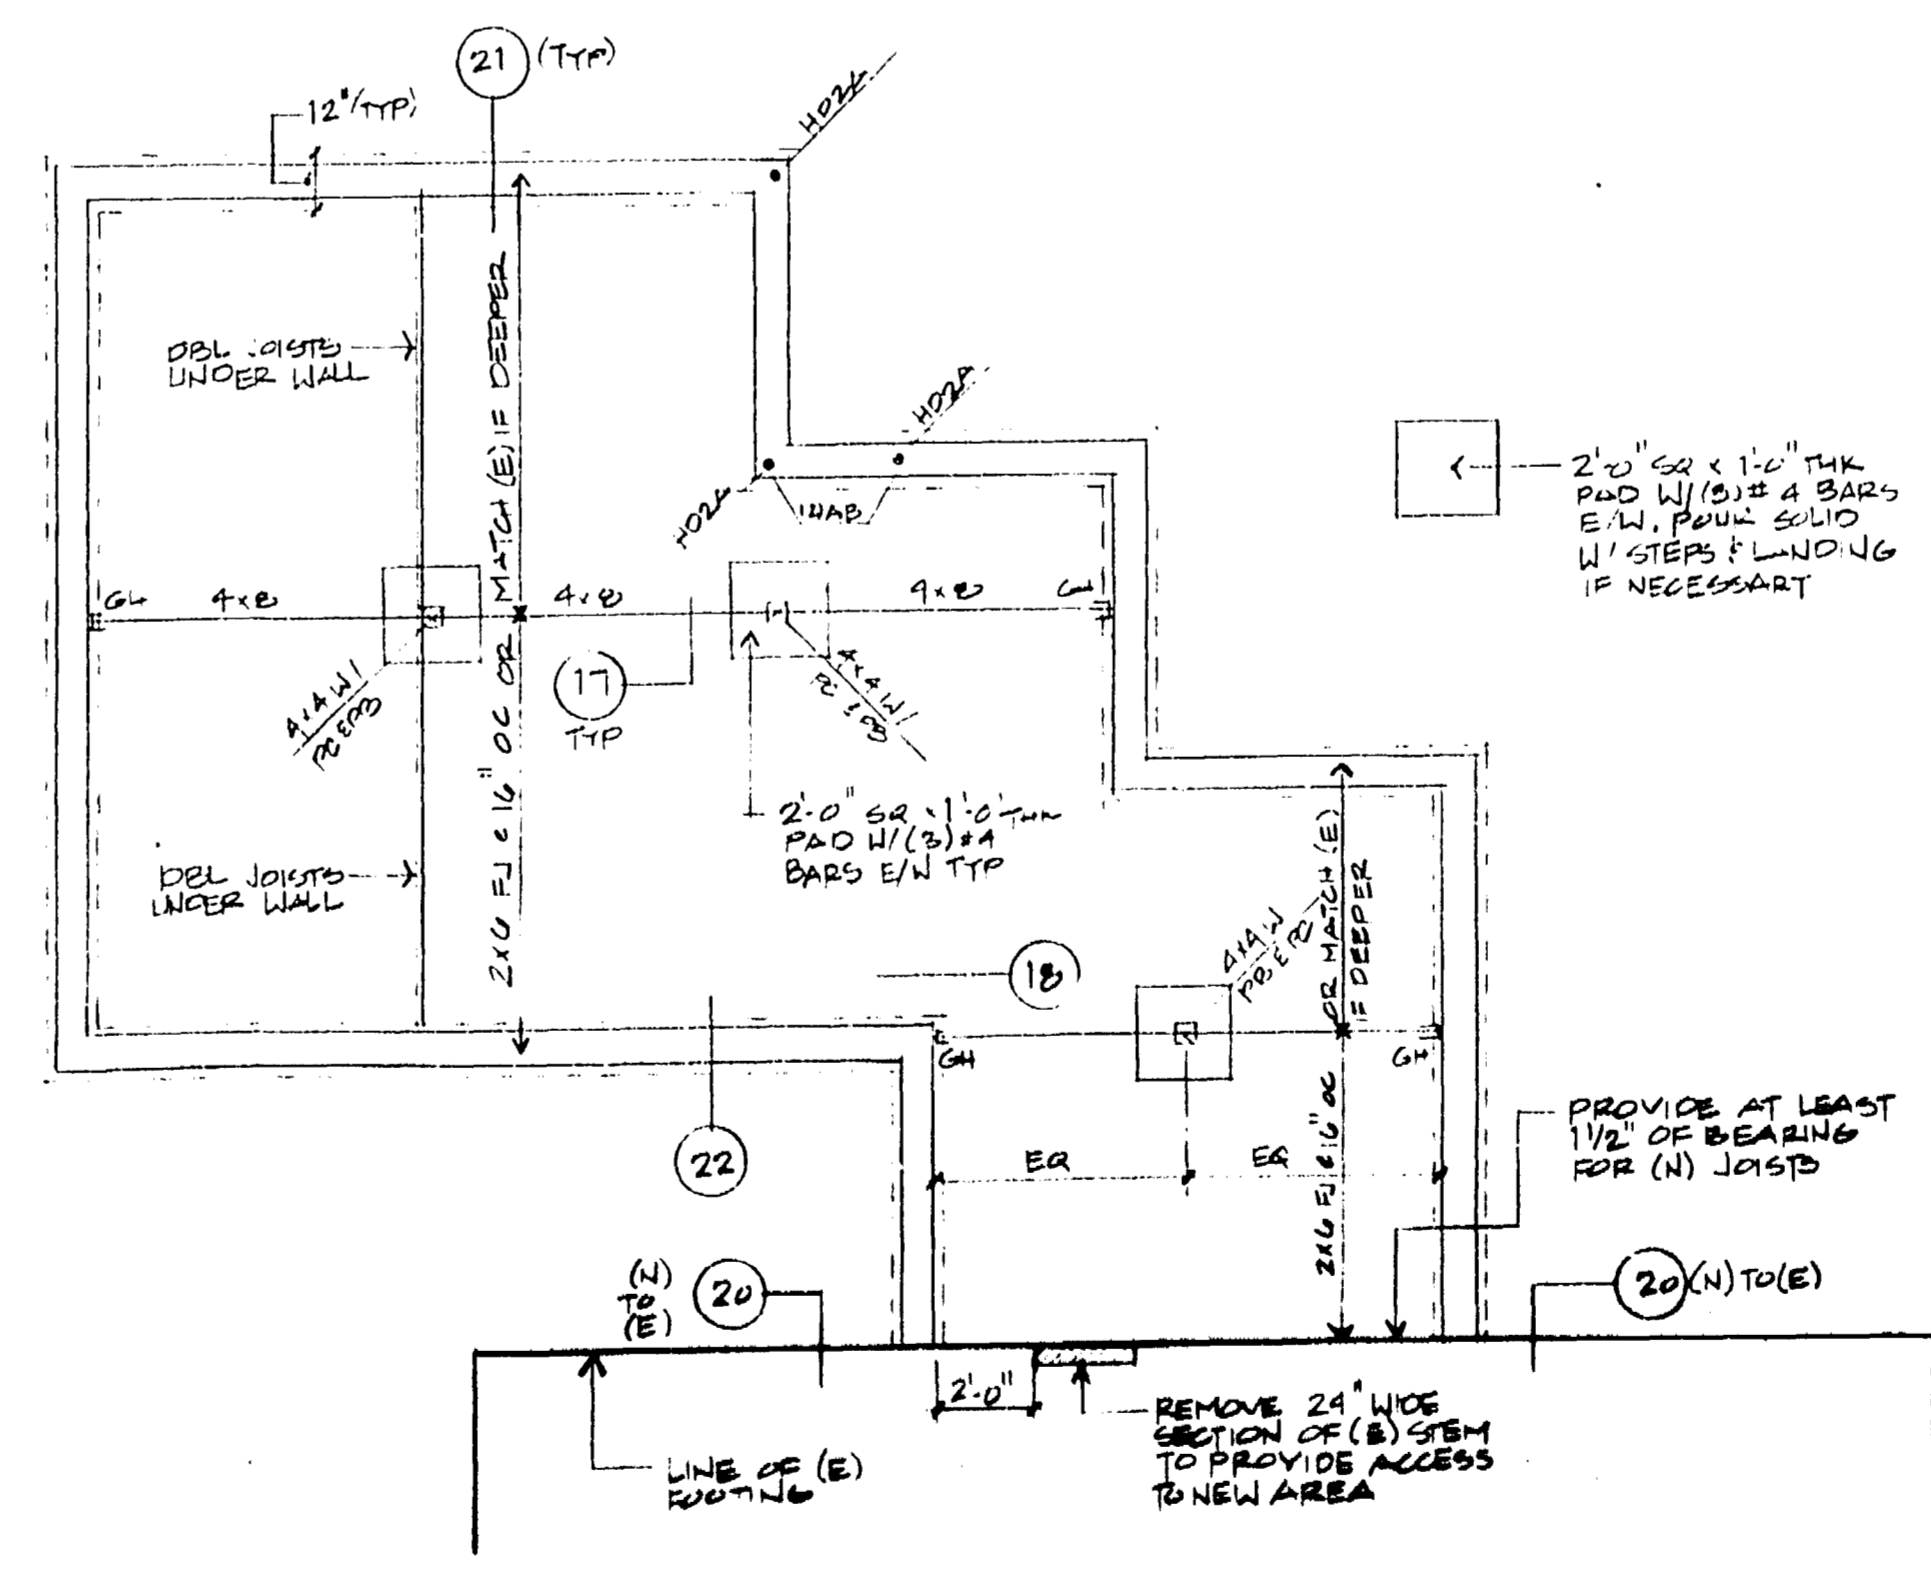 21 (TYP)
12" (TYP)
HD2A
DBL JOISTS
UNDER WALL
2x6 FJ @ 16" OC OR MATCH (E) IF DEEPER
HD2A
HD2A
2'-0" SQ x 1'-0" THK
PAD W/(3)# 4 BARS
E/W. POUR SOLID
W/ STEPS & LANDING
IF NECESSARY
GH
4x8
4x8
4x8
GH
4x4 W/
PC & PB
17
TYP
4x4 W/
PC & PB
2'-0" SQ x 1'-0" THK
PAD W/(3)#4
BARS E/W TYP
DBL JOISTS
UNDER WALL
18
4x4 W
PB & PC
2x6 FJ @ 16" OC OR MATCH (E)
IF DEEPER
GH
GH
22
EQ
EQ
PROVIDE AT LEAST
1 1/2" OF BEARING
FOR (N) JOISTS
(N)
TO
(E)
20
20 (N) TO (E)
2'-0"
REMOVE 24" WIDE
SECTION OF (E) STEM
TO PROVIDE ACCESS
TO NEW AREA
LINE OF (E)
FOOTING